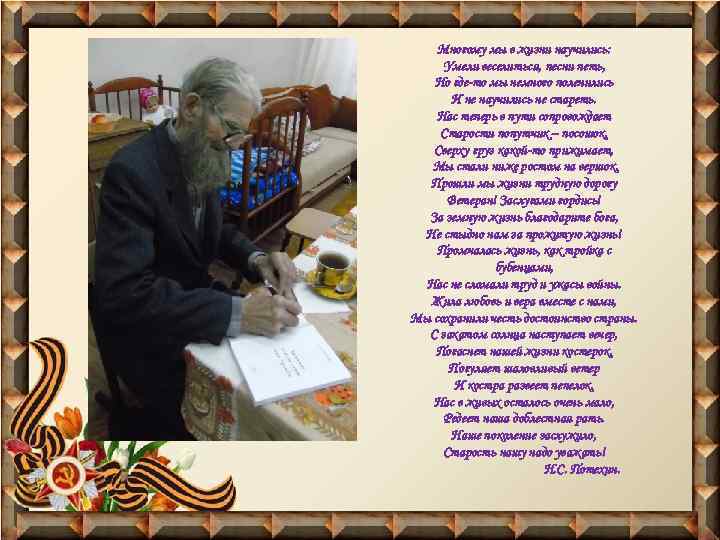 Многому мы в жизни научились:
Умели веселиться, песни петь,
Но где-то мы немного поленились
И не научились не стареть.
Нас теперь в пути сопровождает
Старости попутчик – посошок,
Сверху груз какой-то прижимает,
Мы стали ниже ростом на вершок.
Прошли мы жизни трудную дорогу
Ветеран! Заслугами гордись!
За земную жизнь благодарите бога,
Не стыдно нам за прожитую жизнь!
Промчалась жизнь, как тройка с
бубенцами,
Нас не сломали труд и ужасы войны.
Жила любовь и вера вместе с нами,
Мы сохранили честь достоинство страны.
С закатом солнца наступает вечер,
Погаснет нашей жизни костерок,
Погуляет шаловливый ветер
И костра развеет пепелок,
Нас в живых осталось очень мало,
Редеет наша доблестная рать.
Наше поколение заслужило,
Старость нашу надо уважать!
Н.С. Потехин.